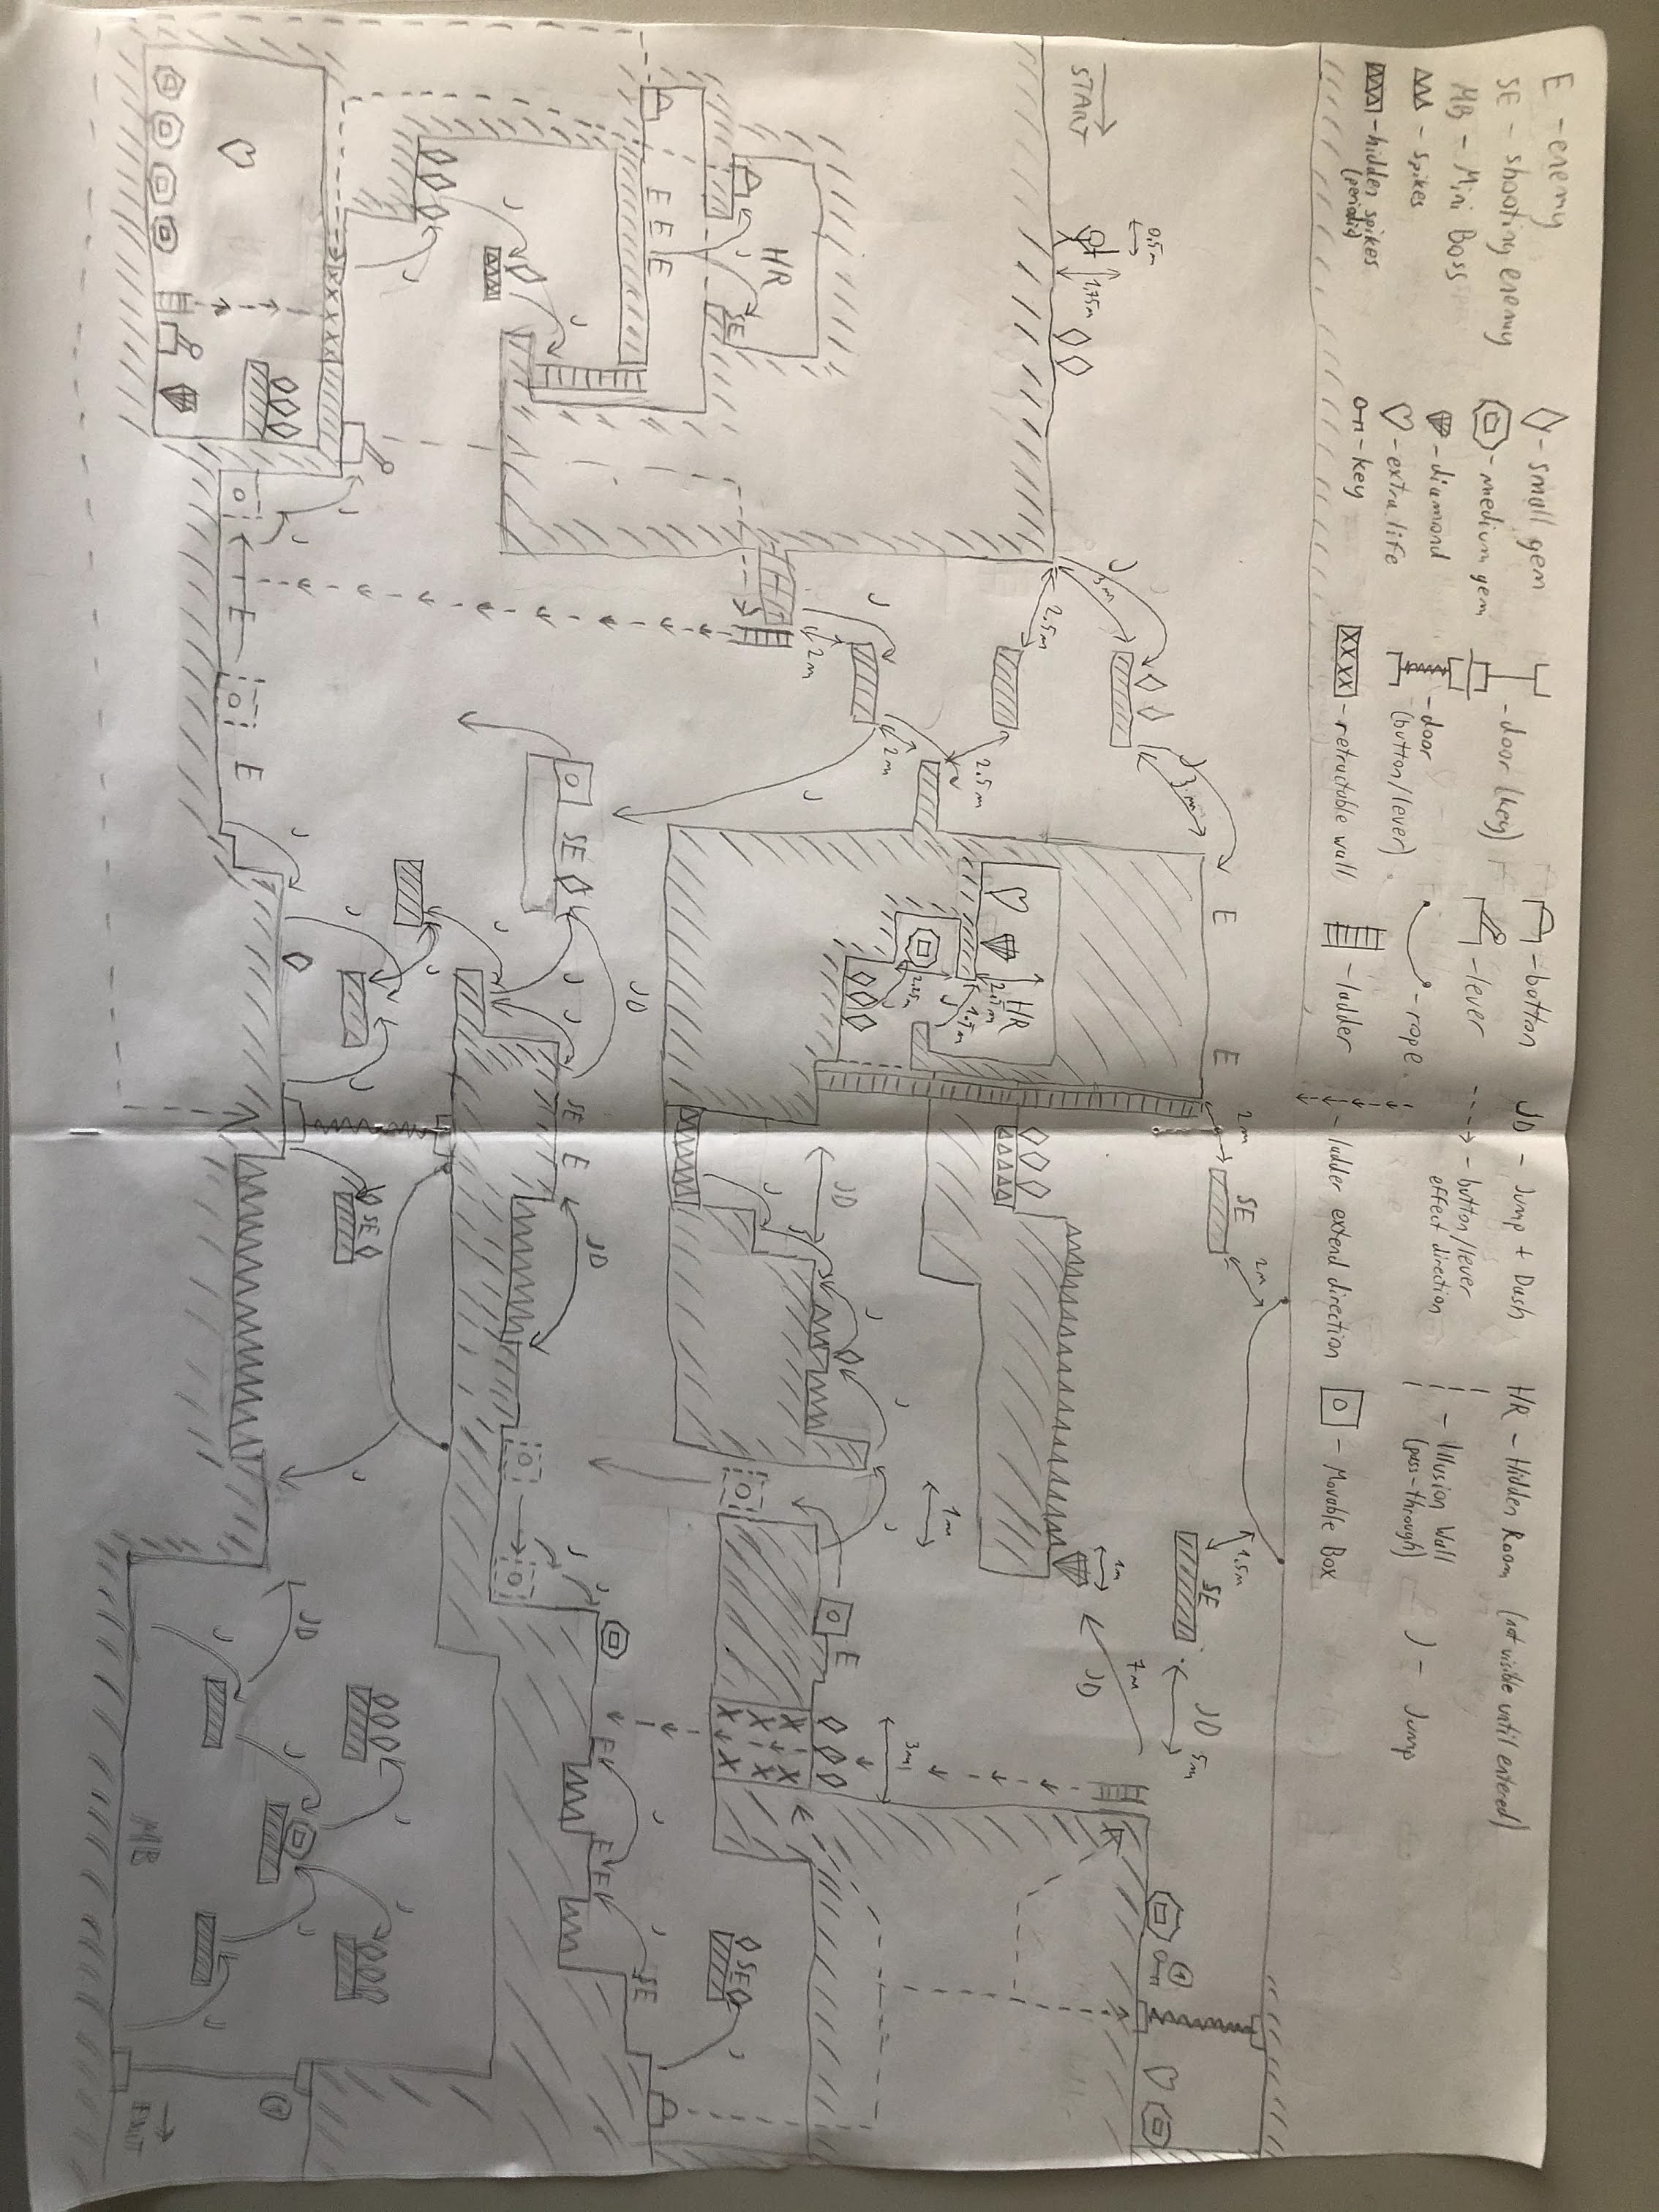 E - enemy
SE - shooting enemy
MB - Mini Boss
- spikes
- hidden spikes
(periodic)
- small gem
- medium gem
- diamond
- extra life
- key
- door (key)
- door
(button/lever)
XXXX - retractable wall
- button
- lever
- rope
- ladder
JD - Jump + Dash
- button/lever
effect direction
- ladder extend direction
HR - Hidden Room (not visible until entered)
- Illusion Wall
(pass-through)
J - Jump
- Movable Box
START
0,5m
1,75m
J
3m
J
3m
E
E
2m
SE
2m
1,5m
SE
JD
5m
1
7m
JD
1m
2.5m
2.5m
HR
2.5m
1.5m
J
2.25m
J
2m
J
2m
J
1m
3m
JD
J
J
J
J
J
E
XX
XX
XX
HR
J
SE
E E E
J
J
J
SE
J
SE
J
J
E
E E
JD
SE
J
J
SE E
JD
J
J
J
J
J
J
J
SE
J
J
J
JD
J
J
J
J
MB
1
EXIT
XXXXX
J
J
E
E
J